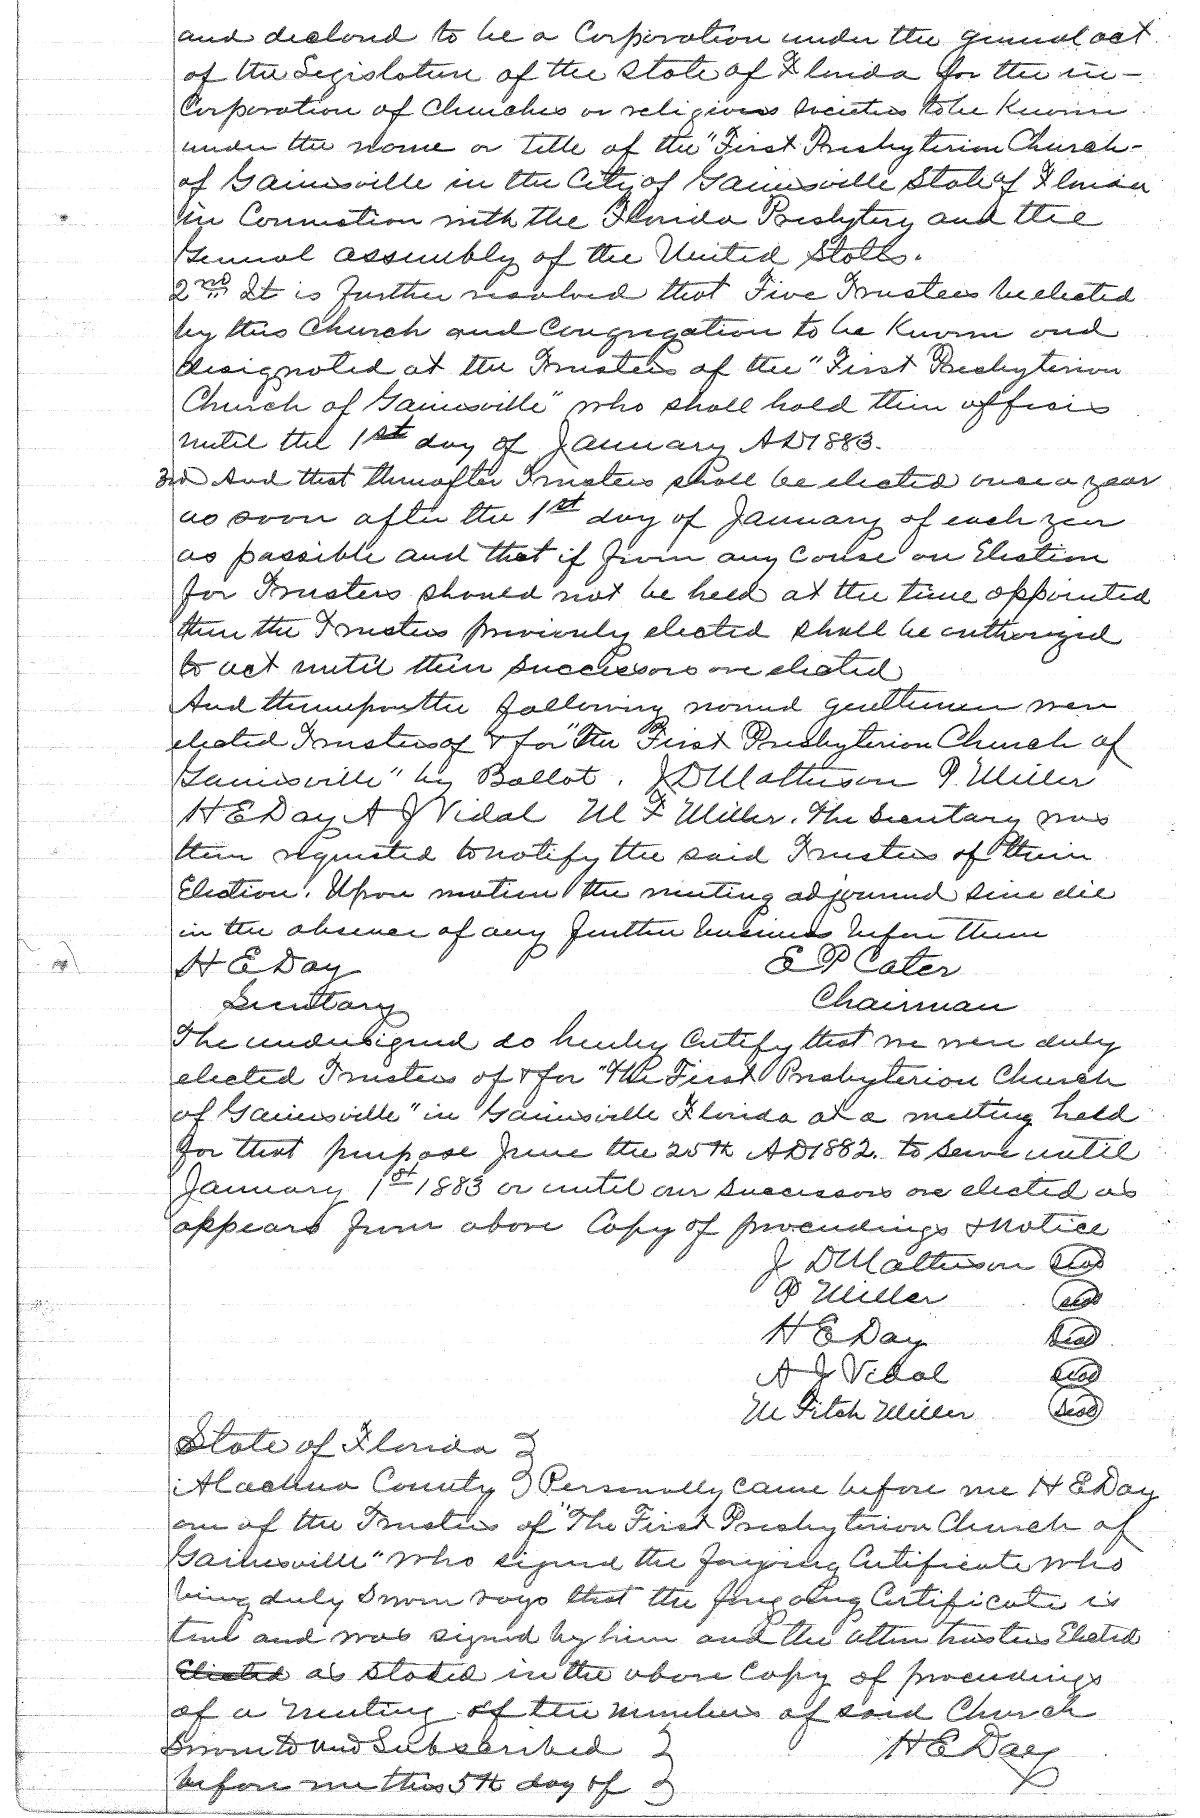 and declared to be a Corporation under the general act
of the Legislature of the State of Florida for the in-
Corporation of Churches or religious societies to be Known
under the name or title of the "First Presbyterian Church-
of Gainesville in the City of Gainesville State of Florida
in Connection with the Florida Presbytery and the
General assembly of the United States.
2nd It is further resolved that Five Trustees be elected
by this Church and Congregation to be Known and
designated at the Trustees of the "First Presbyterian
Church of Gainesville" who shall hold their offices
until the 1st day of January AD 1883.
3rd And that thereafter Trustees shall be elected once a year
as soon after the 1st day of January of each year
as possible and that if from any Cause an Election
for Trustees should not be held at the time appointed
then the Trustees previously elected shall be authorized
to act until their successors are elected
And thereupon the following named gentlemen were
elected Trustees of & for "The First Presbyterian Church of
Gainesville" by Ballot. J D Matheson P. Miller
H E Day A J Vidal M F Miller. The Secretary was
then requested to notify the said Trustees of their
Election. Upon motion the meeting adjourned sine die
in the absence of any further business before them
H E Day E P Cater
Secretary Chairman
The undersigned do hereby Certify that we were duly
elected Trustees of & for "The First Presbyterian Church
of Gainesville" in Gainesville Florida at a meeting held
for that purpose June the 25th AD 1882. to serve until
January 1st 1883 or until our successors are elected as
appears from above Copy of proceedings & Notice
J D Matheson Seal
P Miller Seal
H E Day Seal
A J Vidal Seal
M Fitch Miller Seal
State of Florida }
Alachua County } Personally came before me H E Day
one of the Trustees of "The First Presbyterian Church of
Gainesville" who signed the forgoing Certificate who
being duly sworn says that the forgoing Certificate is
true and was signed by him and the other trustees Elected
Elected as stated in the above Copy of proceedings
of a meeting of the members of said Church
Sworn to and Subscribed } H E Day
before me this 5th day of }